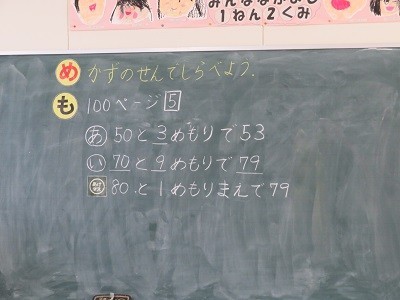 みんななかよし
1ねん2くみ
め かずのせんでしらべよう.
も 100ページ 5
あ 50と3めもりで53
い 70と9めもりで79
80と1めもりまえで79